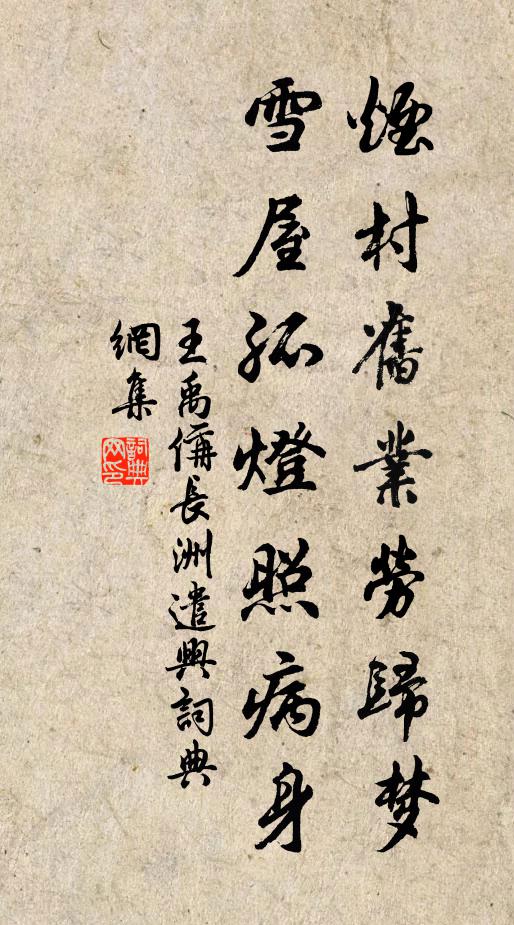 煙村舊業勞歸梦
雪屋孤燈照病身
王禹偁長洲遣興詞典
網集
詞典
网印